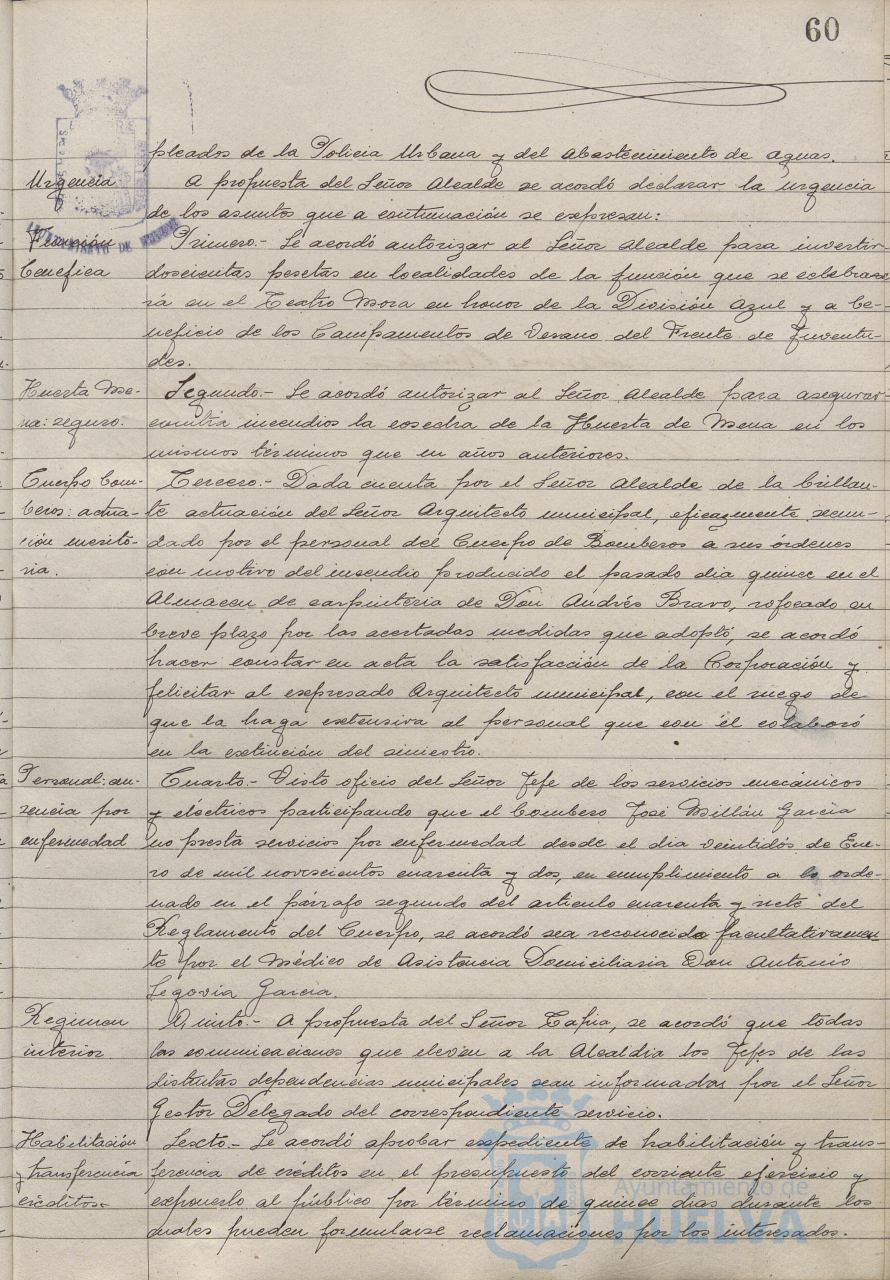 60
pleados de la Policia Urbana y del Abastecimiento de aguas.
Urgencia
A propuesta del Señor Alcalde se acordó declarar la urgencia
de los asuntos que a continuación se expresan:
Función
benefica
Primero.- Se acordó autorizar al Señor Alcalde para invertir
doscientas pesetas en localidades de la función que se celebra
rá en el Teatro Mora en honor de la División Azul y a be-
neficio de los Campamentos de Verano del Frente de Juventu-
des.
Huerta Me-
na: seguro.
Segundo.- Se acordó autorizar al Señor Alcalde para asegurar
contra incendios la cosecha de la Huerta de Mena en los
mismos términos que en años anteriores.
Cuerpo bom-
beros: actua-
ción merito-
ria.
Tercero.- Dada cuenta por el Señor Alcalde de la brillan-
te actuación del Señor Arquitecto municipal, eficazmente secun-
dado por el personal del Cuerpo de Bomberos a sus órdenes
con motivo del incendio producido el pasado dia quince en el
Almacen de carpinteria de Don Andrés Bravo, sofocado en
breve plazo por las acertadas medidas que adoptó, se acordó
hacer constar en acta la satisfacción de la Corporación y
felicitar al expresado Arquitecto municipal, con el ruego de
que la haga extensiva al personal que con él colaboró
en la extinción del siniestro.
Personal: au-
sencia por
enfermedad
Cuarto.- Visto oficio del Señor Jefe de los servicios mecánicos
y eléctricos participando que el bombero José Millán Garcia
no presta servicios por enfermedad desde el dia veintidós de Ene-
ro de mil novescientos cuarenta y dos, en cumplimiento a lo orde-
nado en el párrafo segundo del articulo cuarenta y siete del
Reglamento del Cuerpo, se acordó sea reconocido facultativamen-
te por el Médico de Asistencia Domiciliaria Don Antonio
Segovia Garcia.
Regimen
interior
Quinto.- A propuesta del Señor Tapia, se acordó que todas
las comunicaciones que eleven a la Alcaldia los Jefes de las
distintas dependencias municipales sean informadas por el Señor
Gestor Delegado del correspondiente servicio.
Habilitación
y transferencia
créditos.
Sexto.- Se acordó aprobar expediente de habilitación y trans-
ferencia de créditos en el presupuesto del corriente ejercicio y
exponerlo al público por término de quince dias durante los
cuales pueden formularse reclamaciones por los interesados.
Ayuntamiento de
HUELVA